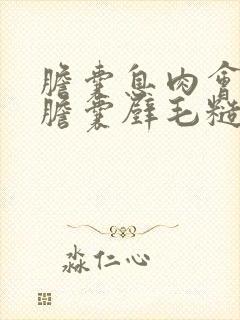 膽囊息肉會
膽囊壁毛糙
淼仁心